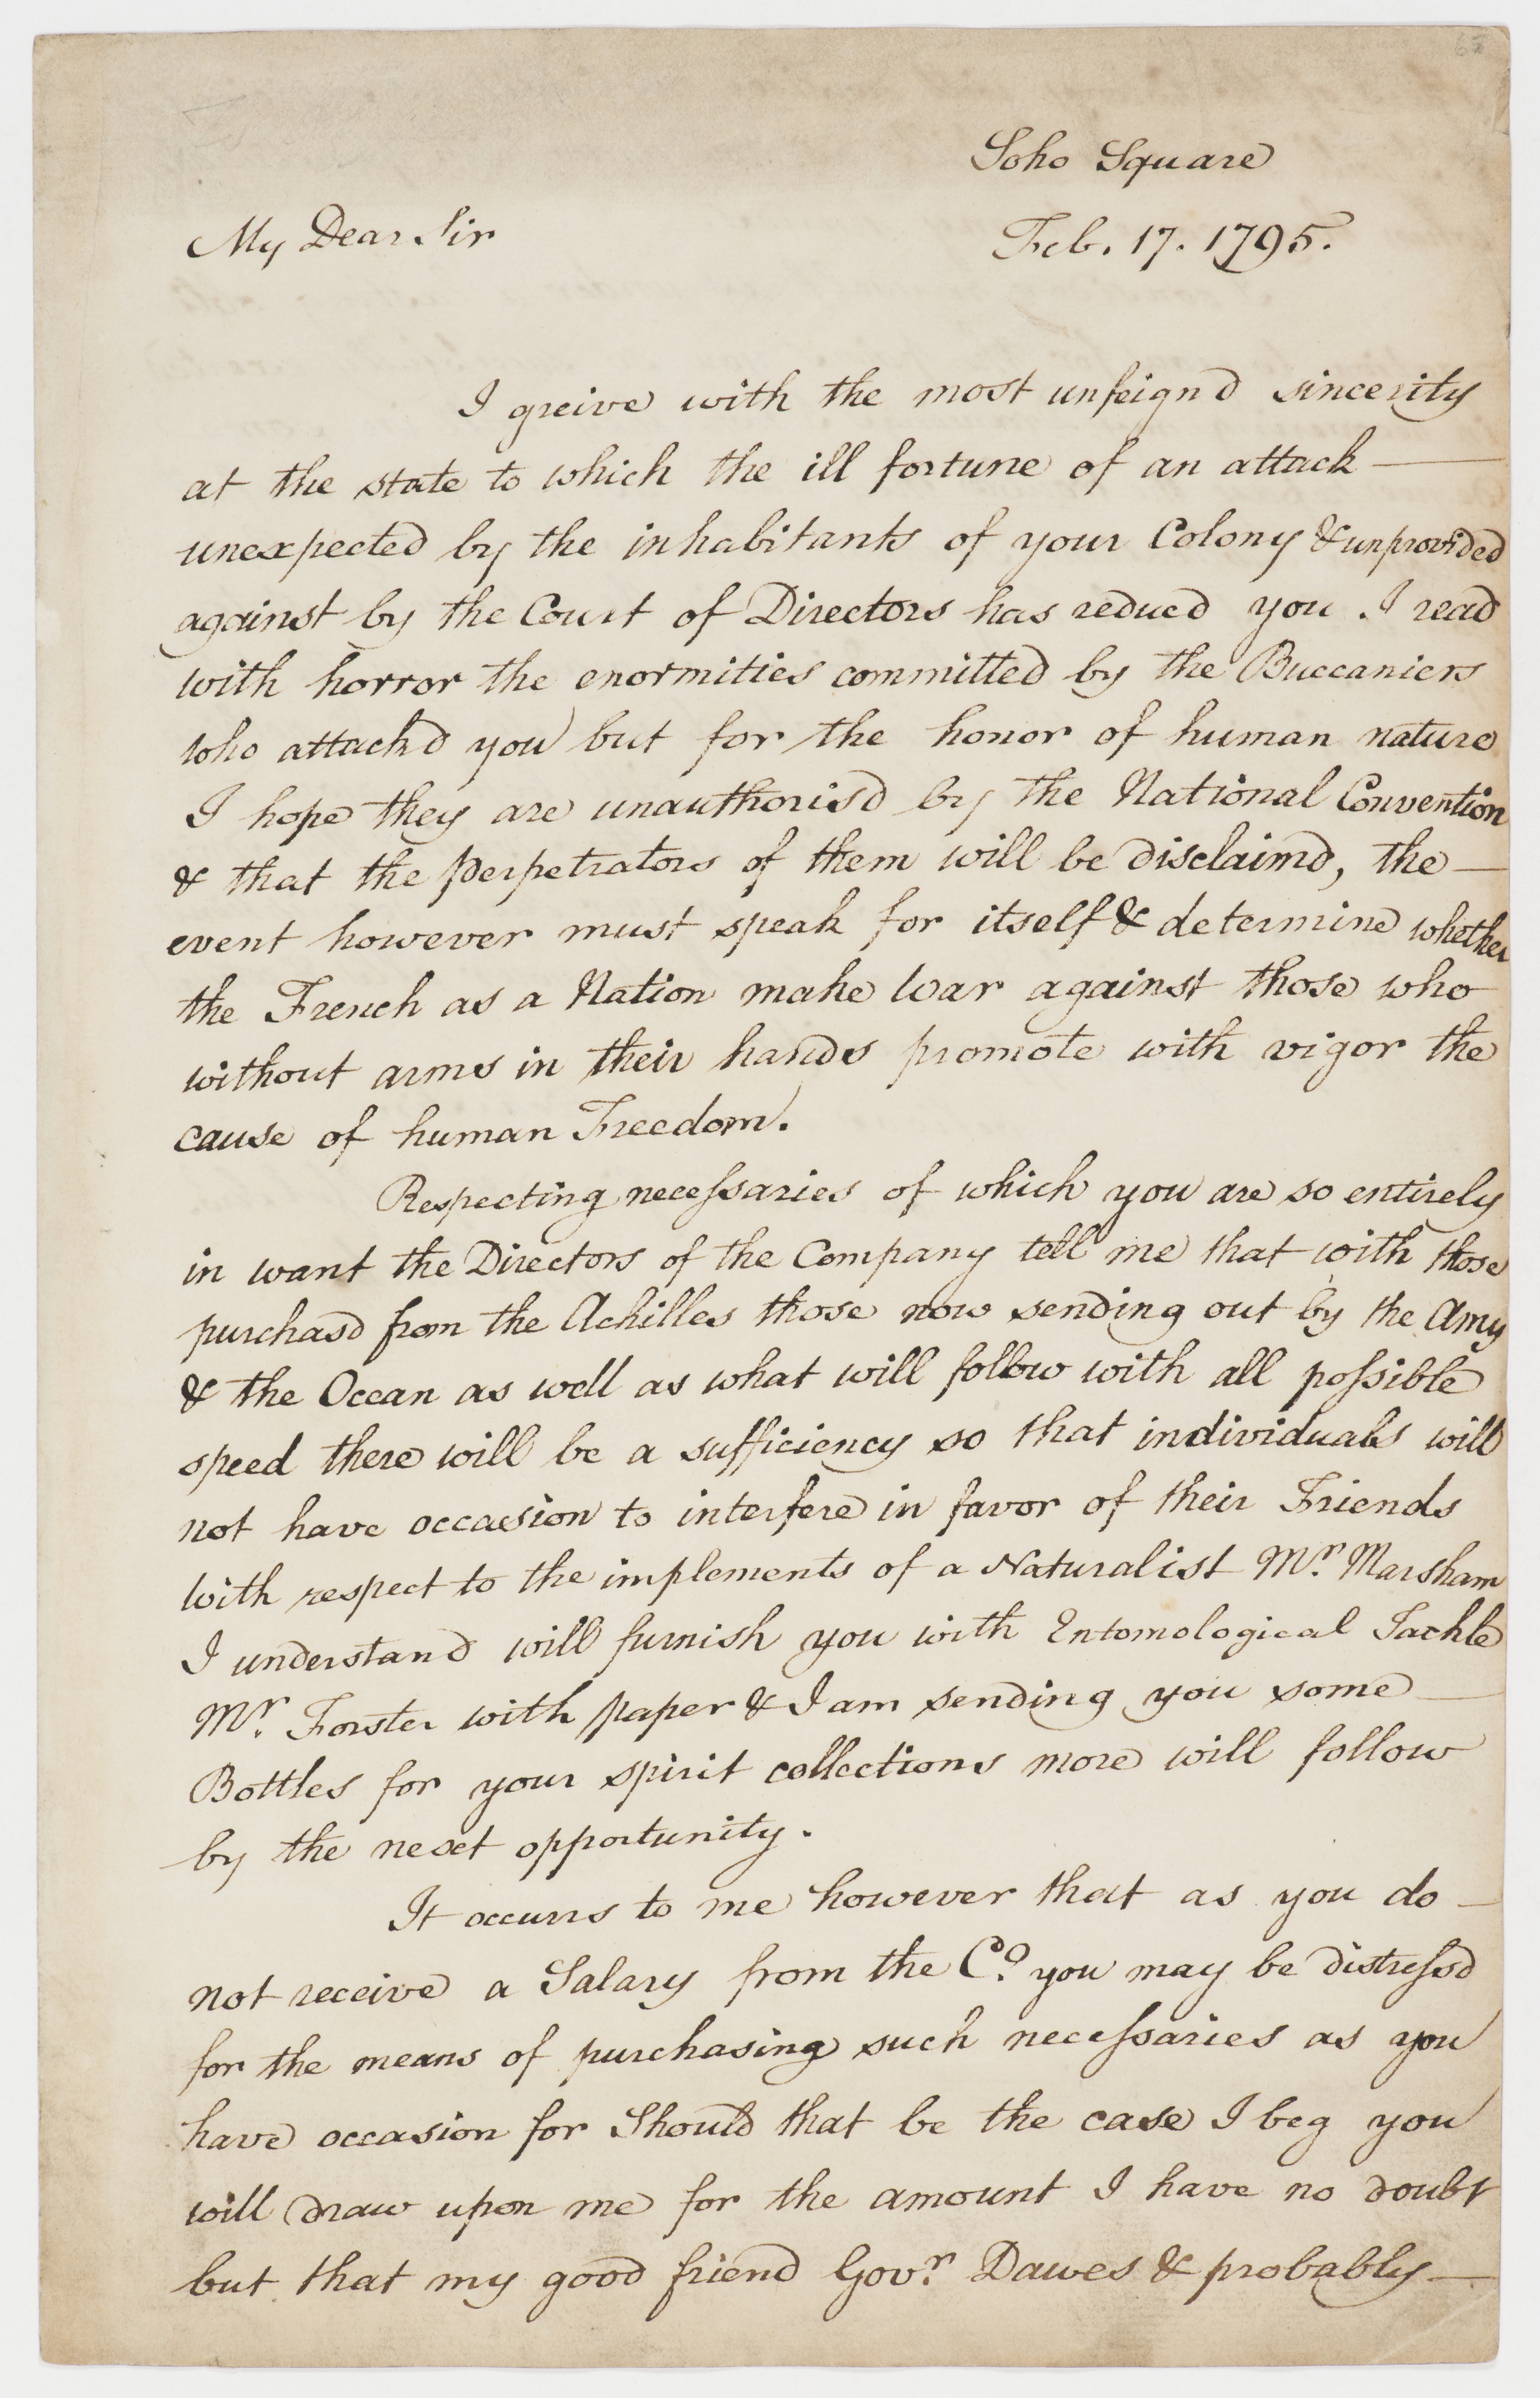 Soho Square
Feb. 17. 1795.
My Dear Sir
I greive with the most unfeignd sincerity
at the state to which the ill fortune of an attack —
unexpected by the inhabitants of your Colony & unprovided
against by the Court of Directors has reducd you . I read
with horror the enormities committed by the Buccaniers
who attackd you but for the honor of human nature
I hope they are unauthorisd by the National Convention
& that the perpetrators of them will be disclaimd, the —
event however must speak for itself & determine whether
the French as a Nation make War against those who
without arms in their hands promote with vigor the
cause of human Freedom.
Respecting necessaries of which you are so entirely
in want the Directors of the Company tell me that with those
purchasd from the Achilles those now sending out by the Amy
& the Ocean as well as what will follow with all possible
speed there will be a sufficiency so that individuals will
not have occasion to interfere in favor of their Friends
With respect to the implements of a Naturalist Mr. Marsham
I understand will furnish you with Entomological Tackle
Mr. Forster with paper & I am sending you some —
Bottles for your spirit collections more will follow
by the next opportunity.
It occurrs to me however that as you do —
not receive a Salary from the Co. you may be distressd
for the means of purchasing such necessaries as you
have occasion for Should that be the case I beg you
will draw upon me for the amount I have no doubt
but that my good friend Govr. Dawes & probably —